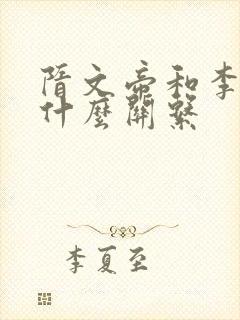 隋文帝和李
什麼關繫
李夏至